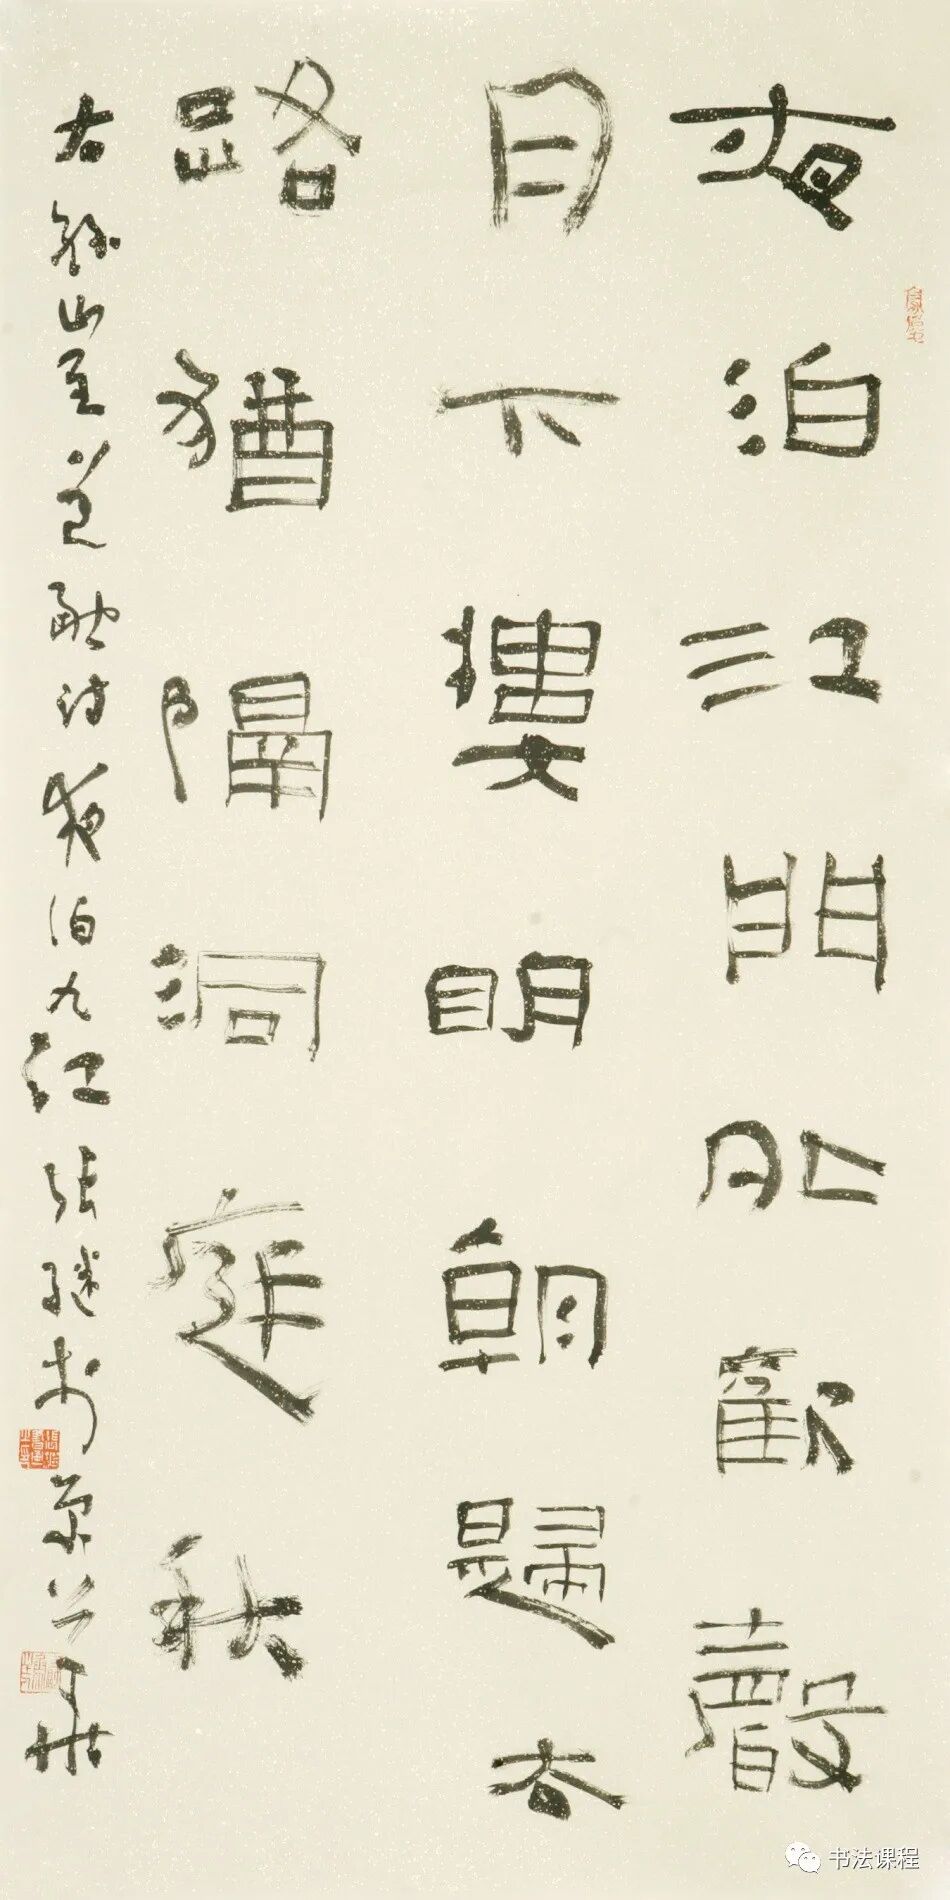 夜泊江門外歡聲
月下樓明朝歸去
路猶隔洞庭秋
右錄崔道融詩夜泊九江張繼於京
书法课程